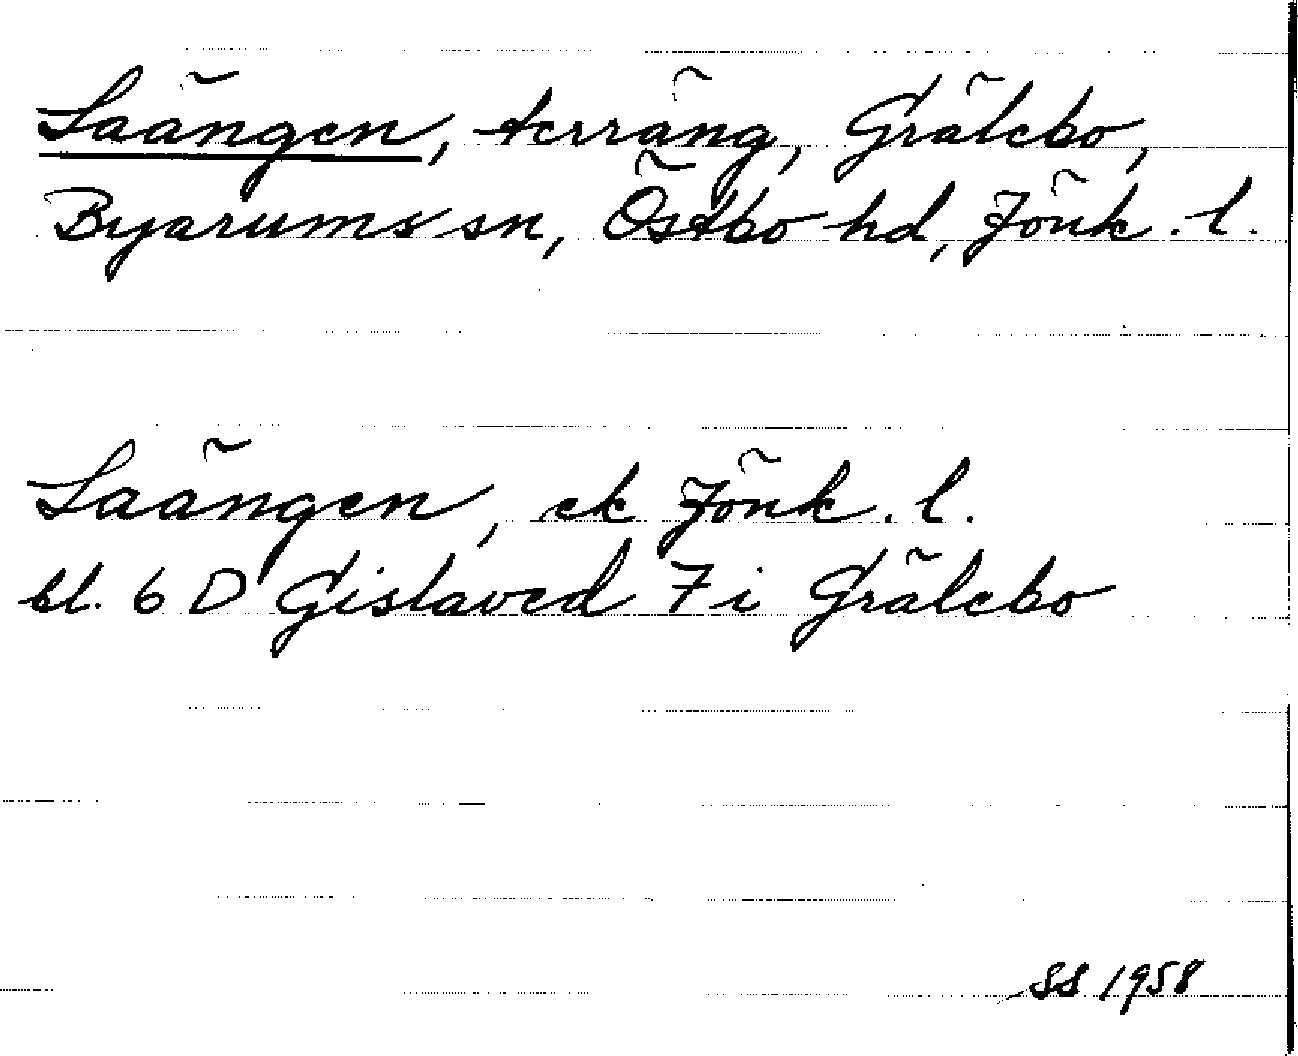 Laängen, terräng, Grälebo,
Byarums sn, Östbo hd, Jönk. l.
Laängen, ek Jönk. l.
bl. 6 D Gislaved 7 i Grälebo
SS 1958